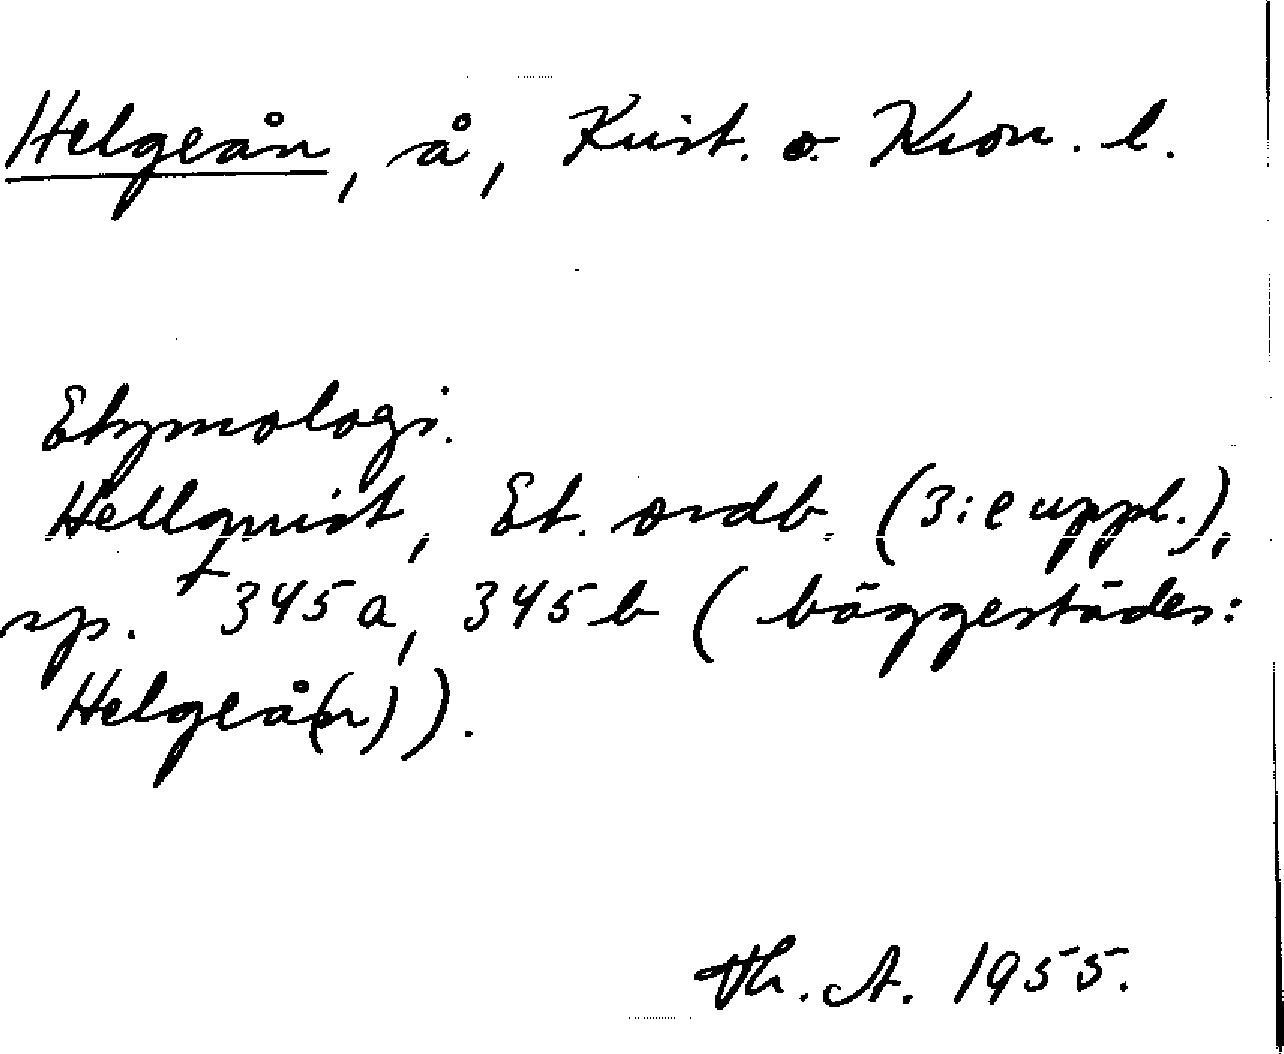 Helgeån, å, Krist. o. Kron. l.
Etymologi.
Hellquist, Et. ordb. (3:e uppl.),
sp. 345a, 345b (bäggestädes:
Helgeå(n)).
Th. A. 1955.